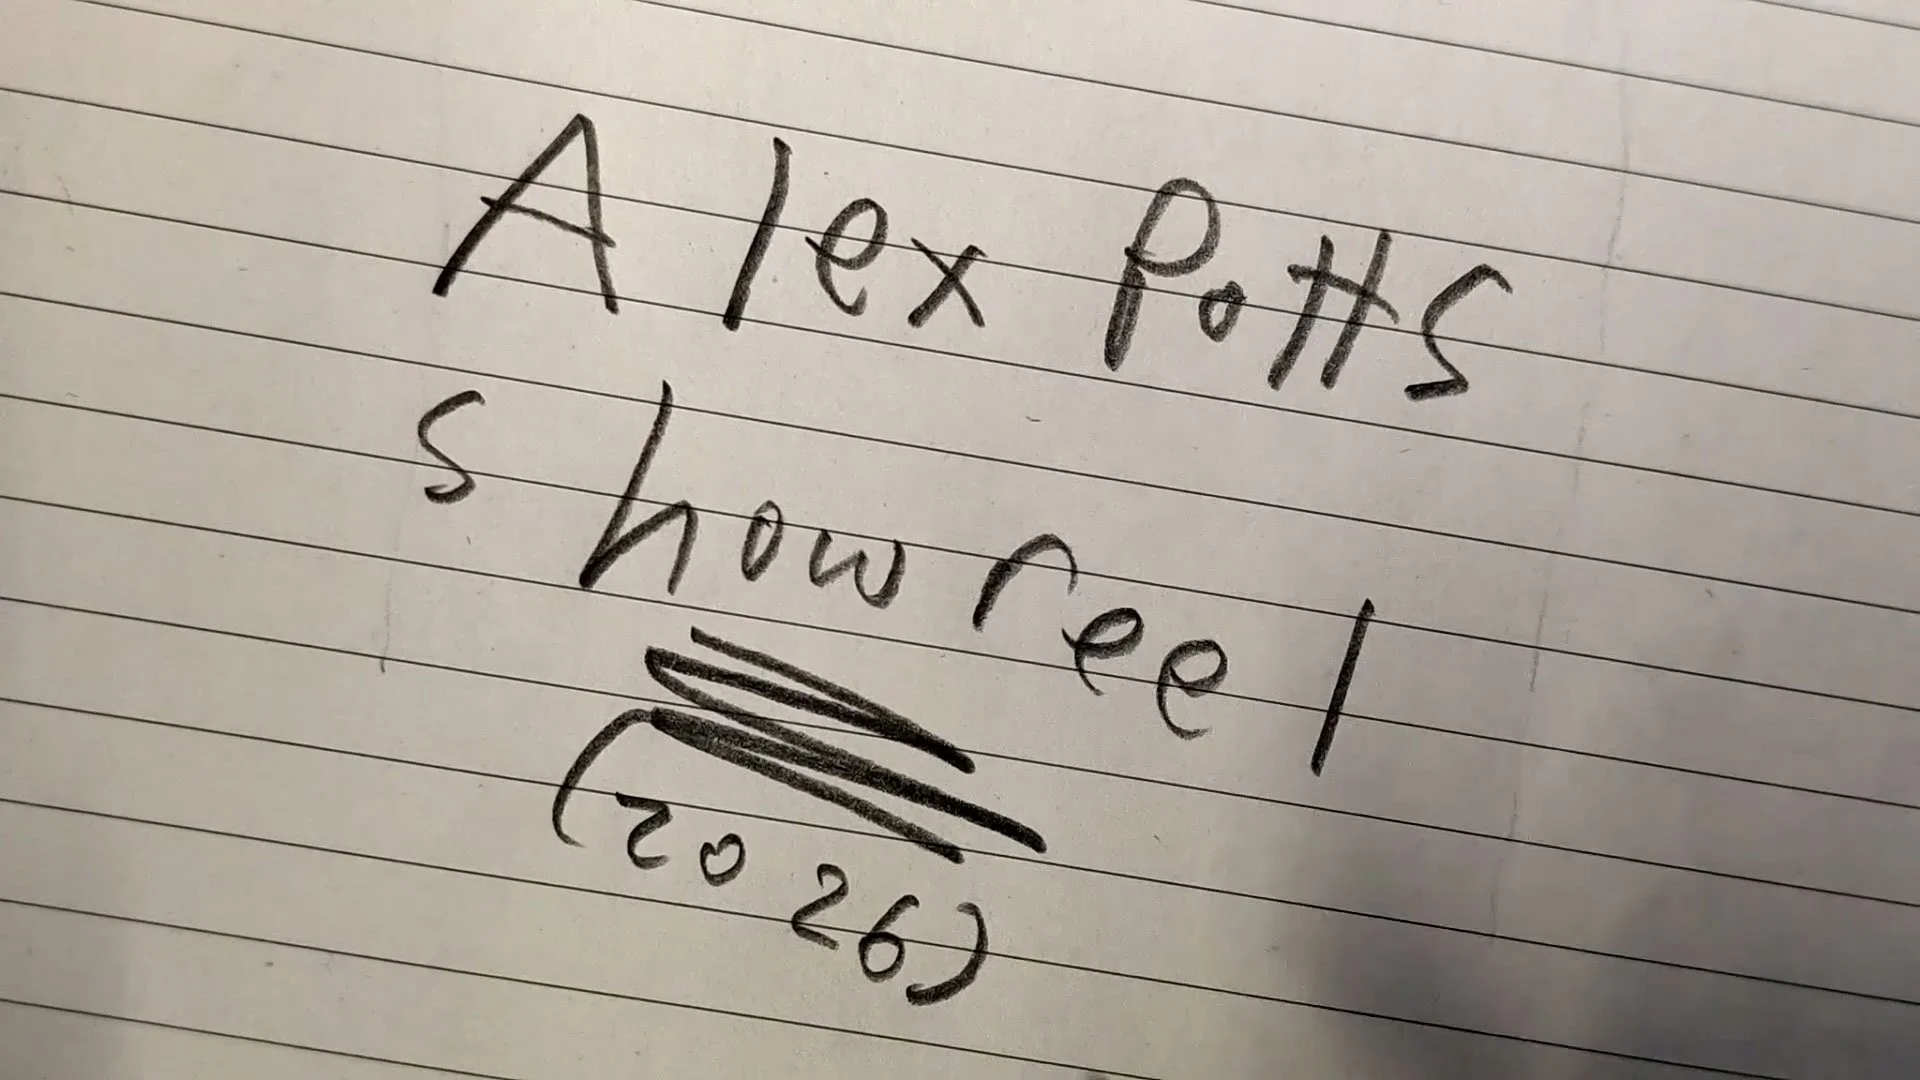 Alex Potts
showreel
(2026)